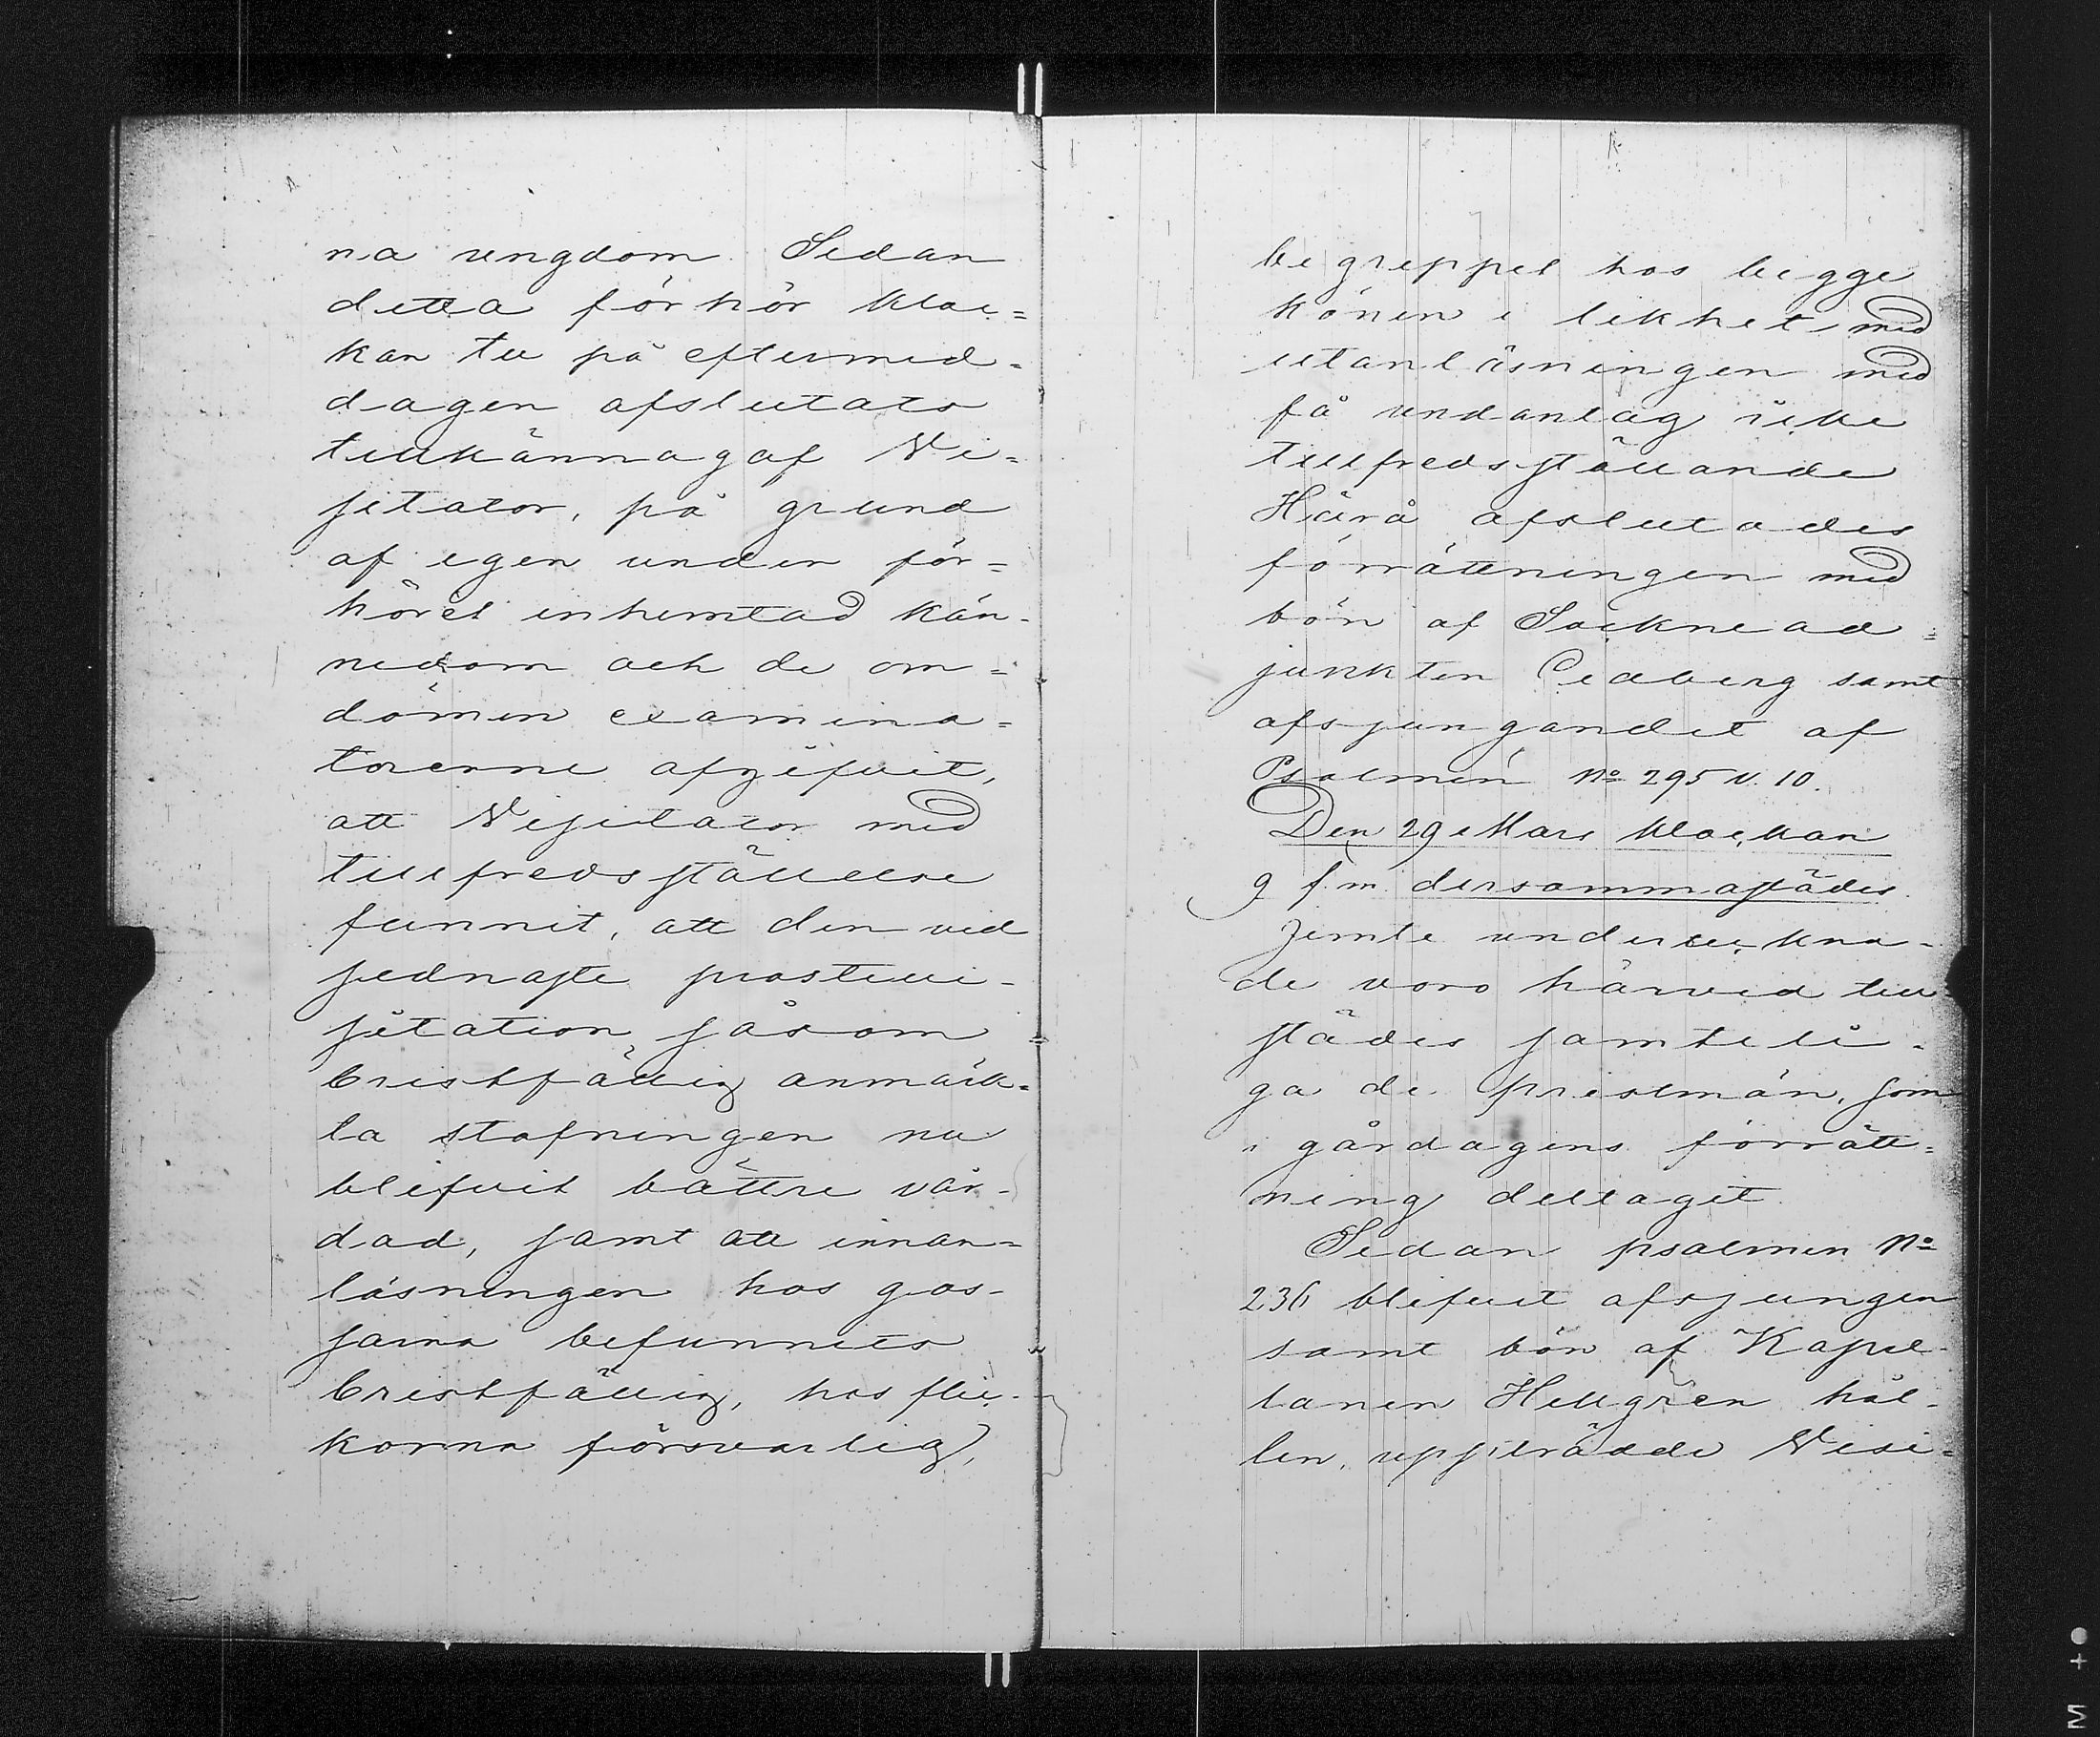 na ungdom. Sedan
detta förhör kloc=
kan tu på eftermid=
dagen afslutats
tillkännagaf Vi=
sitator, på grund
af egen under för=
höret inhemtad kän-
nedom och de om=
dömen examina=
torerne afgifvit,
att Visitator med
tillfredsställelse
funnit, att den vid
sednaste prostevi-
sitation såsom
bristfällig anmärk=
ta stafningen nu
blifvit bättre vår-
dad, samt att innan=
läsningen hos gos-
sarna befunnits
bristfällig, hos flic-
korna försvarlig,
begreppet hos begge
könen i likhet med
utanläsningen med
få undantag icke
tillfredsställande
Härå afslutades
förrättningen med
bön af Socknead=
junkten Cedberg samt
afsjungandet af
Psalmen No 295 v. 10.
Den 29 Mars klockan
9 f.m. dersammastädes.
Jemte underteckna-
de voro härvid till=
städes samteli-
ga de prestmän, som
i gårdagens förrätt=
ning deltagit
Sedan psalmen No
236 blifvit afsjungen
samt bön af Kapel-
lanen Hellgren hål-
len, uppträdde Visi=